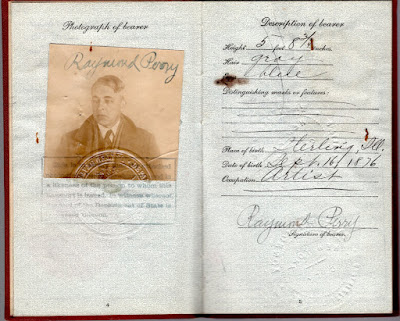 Photograph of bearer
Raymond Perry
a likeness of the person to whom this
passport is issued. In witness whereof
the seal of the Department of State is
Description of bearer
Height 5 feet 8 3/4 inches.
Hair gray
Eyes blue
Distinguishing marks or features:
Place of birth Sterling, Ill.
Date of birth Sept. 16/1876
Occupation Artist
Raymond Perry
Signature of bearer.